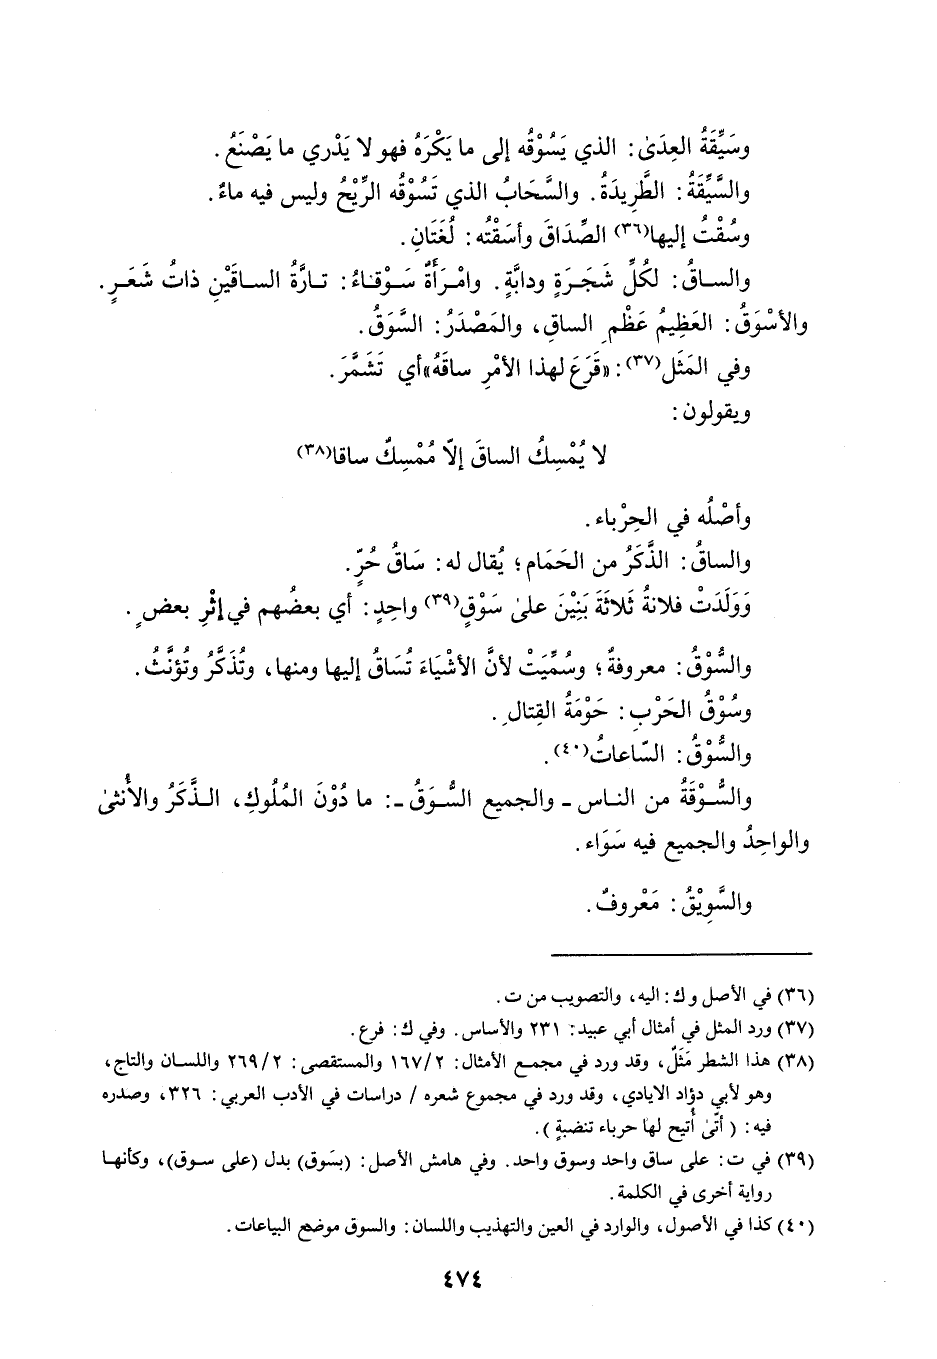 وسَيِّقَةُ العِدَىٰ: الذي يَسُوْقُه إلى ما يَكْرَهُ فهو لا يَدْري ما يَصْنَعُ.
والسَّيِّقَةُ: الطَّرِيدَةُ. والسَّحَابُ الذي تَسُوْقُه الرِّيْحُ وليس فيه ماءٌ.
وسُقْتُ إليها(٣٦) الصِّدَاقَ وأسَقْتُه: لُغَتَانِ.
والساقُ: لكُلِّ شَجَرَةٍ ودابَّةٍ. وامْرَأةٌ سَوْقاءُ: تارَّةُ الساقَيْنِ ذاتُ شَعَرٍ.
والأسْوَقُ: العَظِيمُ عَظْمِ الساقِ، والمَصْدَرُ: السَّوَقُ.
وفي المَثَل(٣٧): «قَرَعَ لهذا الأمْرِ ساقَهُ»أي تَشَمَّرَ.
ويقولون:
لا يُمْسِكُ الساقَ إلاّ مُمْسِكٌ ساقا(٣٨)
وأصْلُه في الحِرْباء.
والساقُ: الذَّكَرُ من الحَمَام؛ يُقال له: سَاقُ حُرٍّ.
وَوَلَدَتْ فلانةُ ثَلاثَةَ بَنِيْنَ علىٰ سَوْقٍ(٣٩) واحِدٍ: أي بعضُهم في إثْرِ بعضٍ.
والسُّوْقُ: معروفةٌ؛ وسُمِّيَتْ لأنَّ الأشْيَاءَ تُسَاقُ إليها ومنها، وتُذَكَّرُ وتُؤنَّثُ.
وسُوْقُ الحَرْبِ: حَوْمَةُ القِتالِ.
والسُّوْقُ: السّاعاتُ(٤٠).
والسُّوْقَةُ من الناس - والجميع السُّوَقُ -: ما دُوْنَ المُلُوكِ، الذَّكَرُ والأُنثىٰ
والواحِدُ والجميع فيه سَوَاء.
والسَّوِيْقُ: مَعْروفٌ.
(٣٦) في الأصل و ك: اليه، والتصويب من ت.
(٣٧) ورد المثل في أمثال أبي عبيد: ٢٣١ والأساس. وفي ك: فرع.
(٣٨) هذا الشطر مَثَلٌ، وقد ورد في مجمع الأمثال: ١٦٧/٢ والمستقصى: ٢٦٩/٢ واللسان والتاج،
وهو لأبي دؤاد الايادي، وقد ورد في مجموع شعره / دراسات في الأدب العربي: ٣٢٦، وصدره
فيه: ( أنّىٰ أُتيح لها حرباء تنضبةٍ ).
(٣٩) في ت: على ساق واحد وسوق واحد. وفي هامش الأصل: (بسَوق) بدل (على سوق)، وكأنها
رواية أخرى في الكلمة.
(٤٠) كذا في الأصول، والوارد في العين والتهذيب واللسان: والسوق موضع البياعات.
٤٧٤